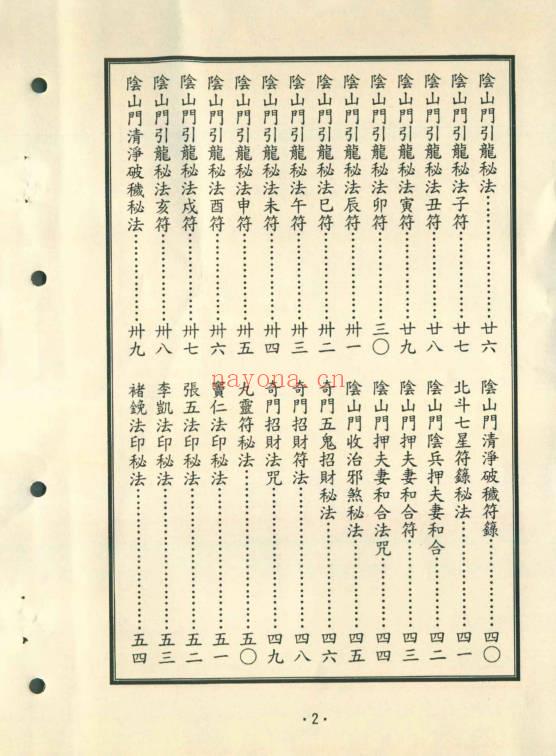 陰山門引龍秘法⋯⋯廿六
陰山門引龍秘法子符⋯⋯廿七
陰山門引龍秘法丑符⋯⋯廿八
陰山門引龍秘法寅符⋯⋯廿九
陰山門引龍秘法卯符⋯⋯三〇
陰山門引龍秘法辰符⋯⋯卅一
陰山門引龍秘法巳符⋯⋯卅二
陰山門引龍秘法午符⋯⋯卅三
陰山門引龍秘法未符⋯⋯卅四
陰山門引龍秘法申符⋯⋯卅五
陰山門引龍秘法酉符⋯⋯卅六
陰山門引龍秘法戌符⋯⋯卅七
陰山門引龍秘法亥符⋯⋯卅八
陰山門清淨破穢秘法⋯⋯卅九
陰山門清淨破穢符籙⋯⋯四〇
北斗七星符籙秘法⋯⋯四一
陰山門陰兵押夫妻和合⋯⋯四二
陰山門押夫妻和合符⋯⋯四三
陰山門押夫妻和合法咒⋯⋯四四
陰山門收治邪煞秘法⋯⋯四五
奇門五鬼招財秘法⋯⋯四六
奇門招財符法⋯⋯四八
奇門招財法咒⋯⋯四九
九靈符秘法⋯⋯五〇
竇仁法印秘法⋯⋯五一
張五法印秘法⋯⋯五二
李凱法印秘法⋯⋯五三
褚鋔法印秘法⋯⋯五四
nayona.cn
·2·